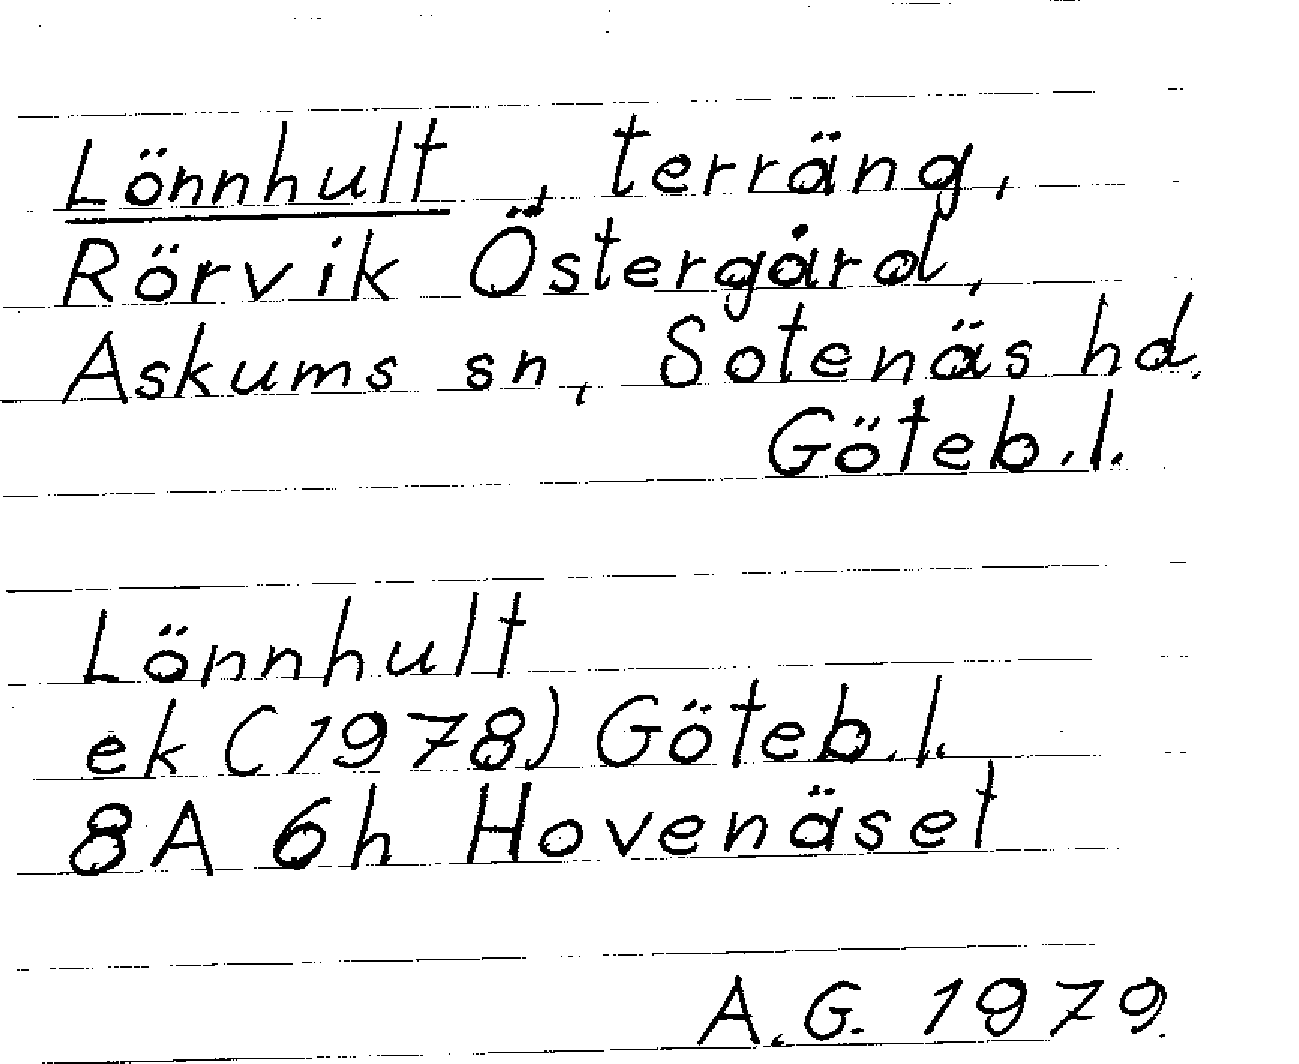 Lönnhult, terräng,
Rörvik Östergård,
Askums sn, Sotenäs hd.
Göteb.l.
Lönnhult
ek (1978) Göteb.l.
8A 6h Hovenäset
A.G. 1979.